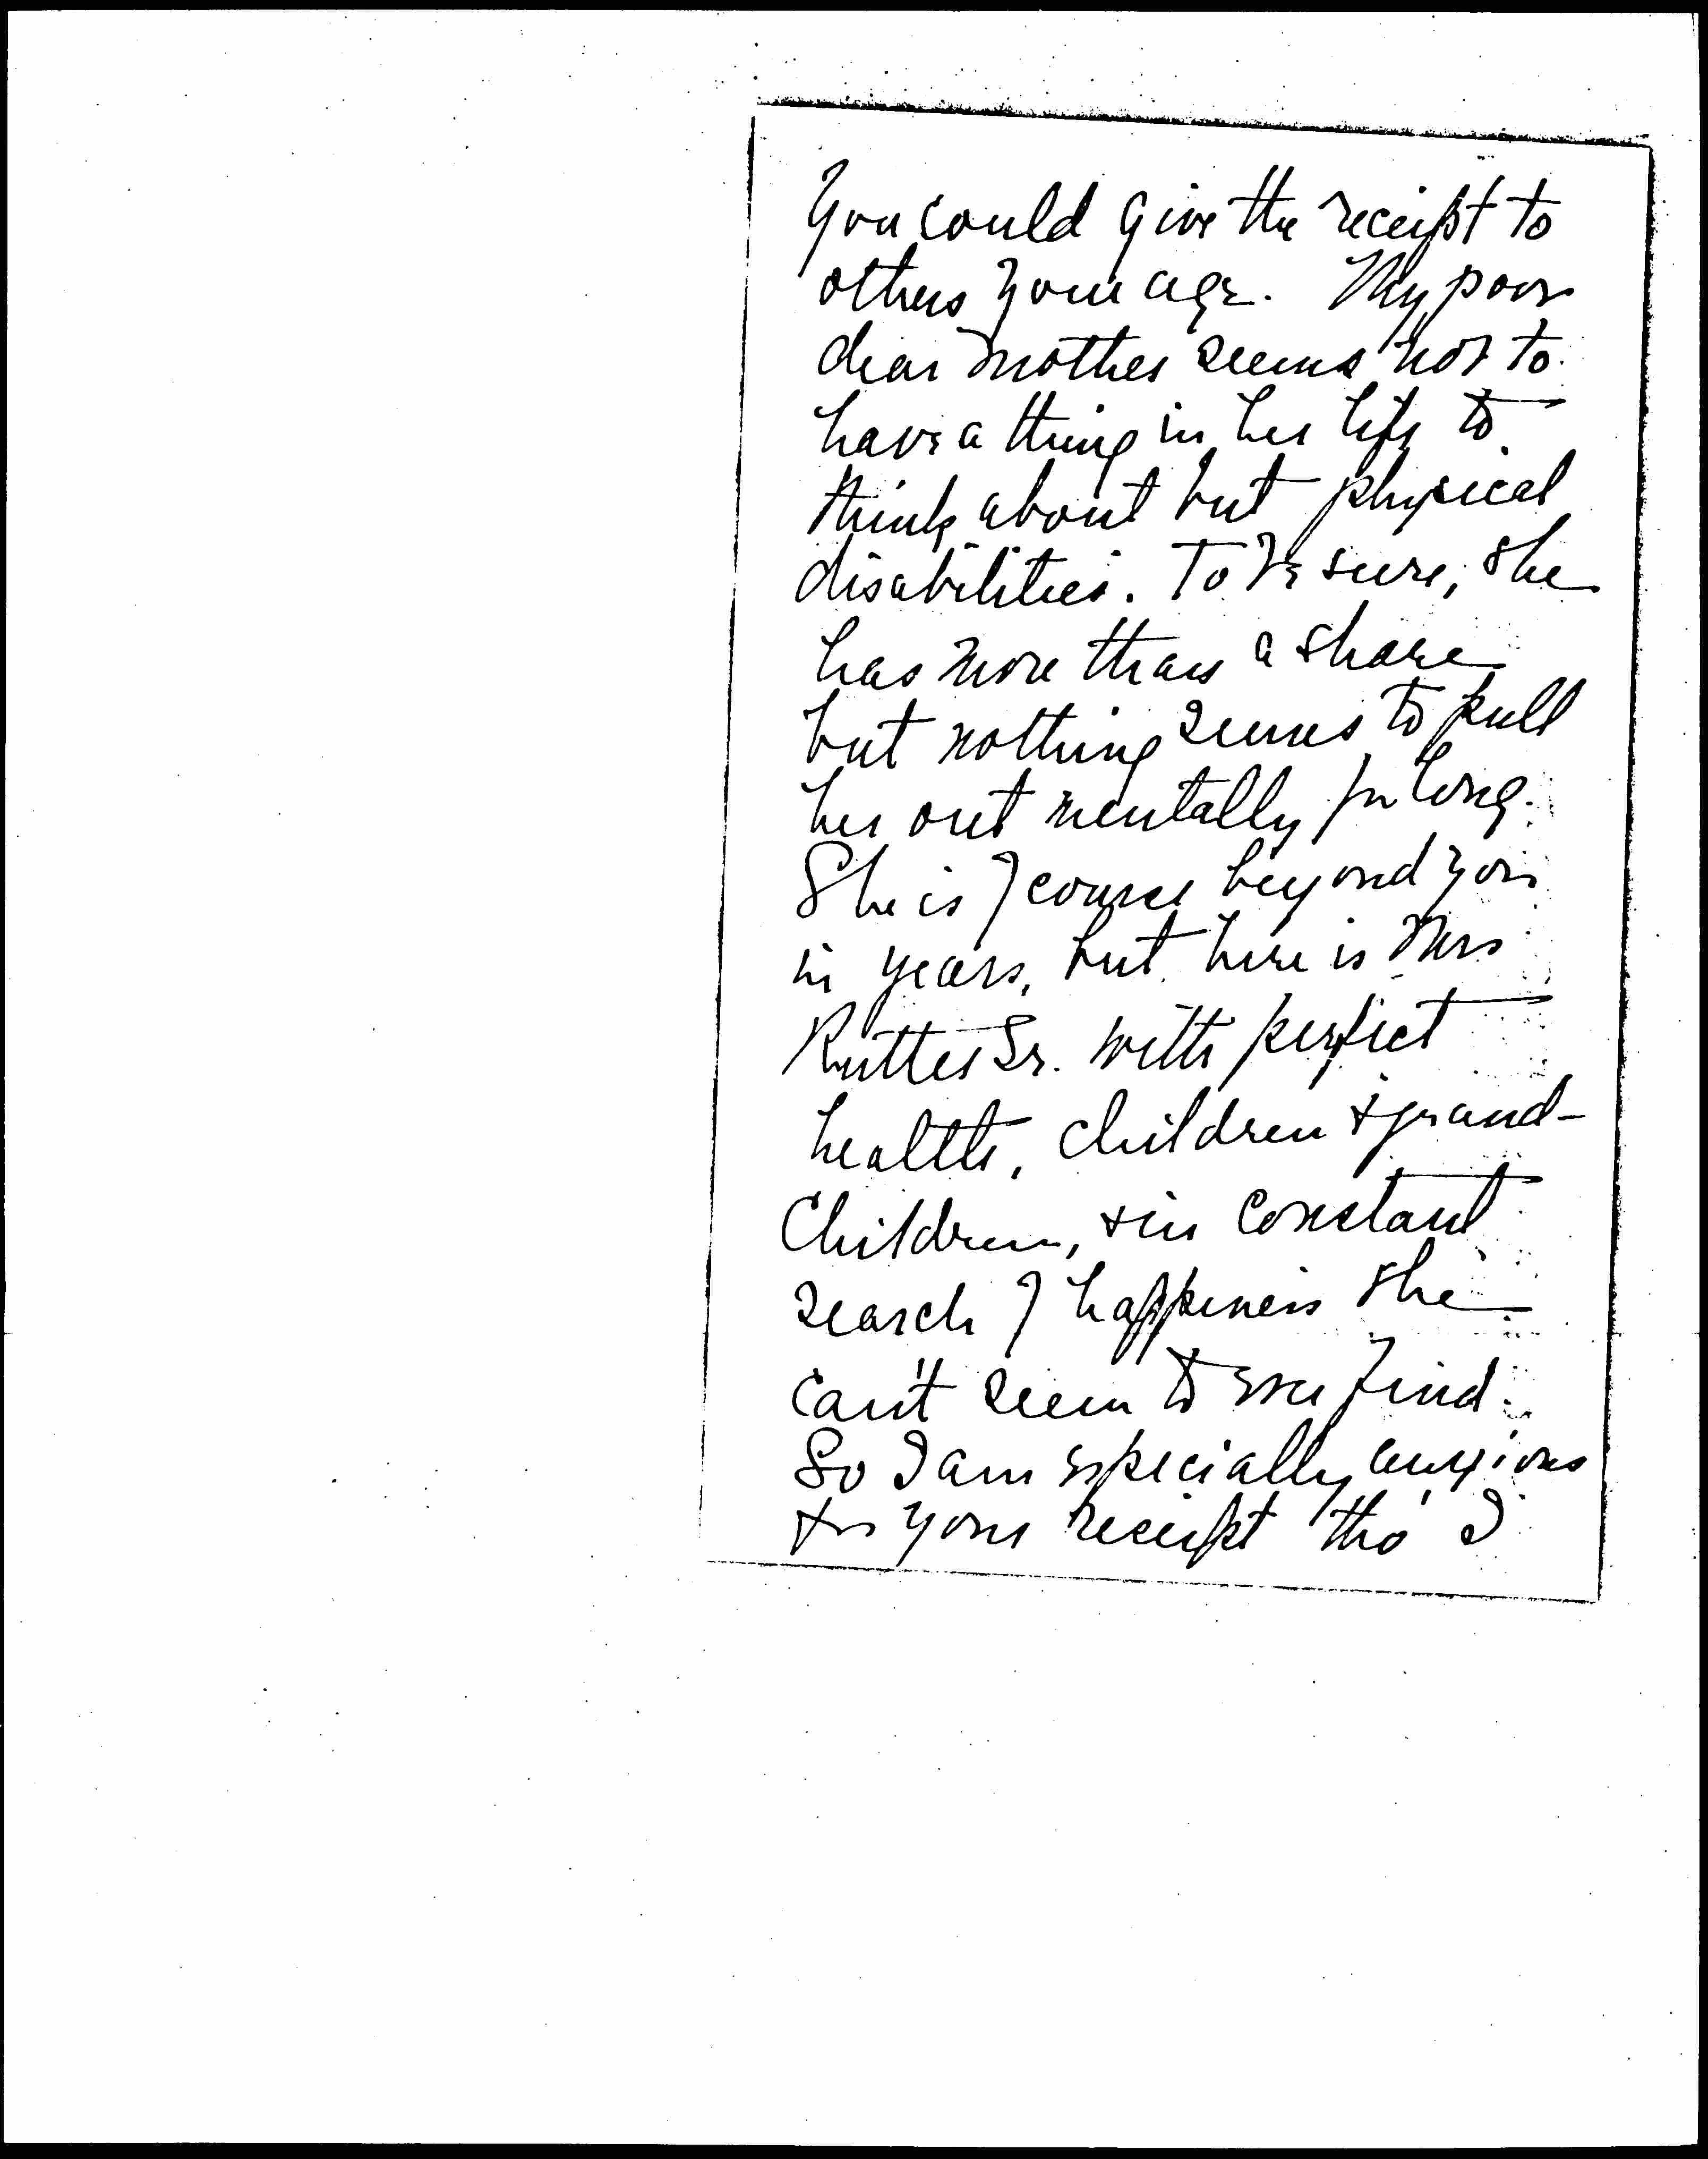 You could give the receipt to
others your age. My poor
dear mother seems not to
have a thing in her life to
think about but physical
disabilities. To be sure, she
has more than a share
but nothing seems to pull
her out mentally for long.
She is of course beyond you
in years, but here is Mrs
Rutter Sr. with perfect
health, children & grand-
children, & in constant
search of happiness she
can't seem to ever find.
So I am especially anxious
for your receipt tho' I